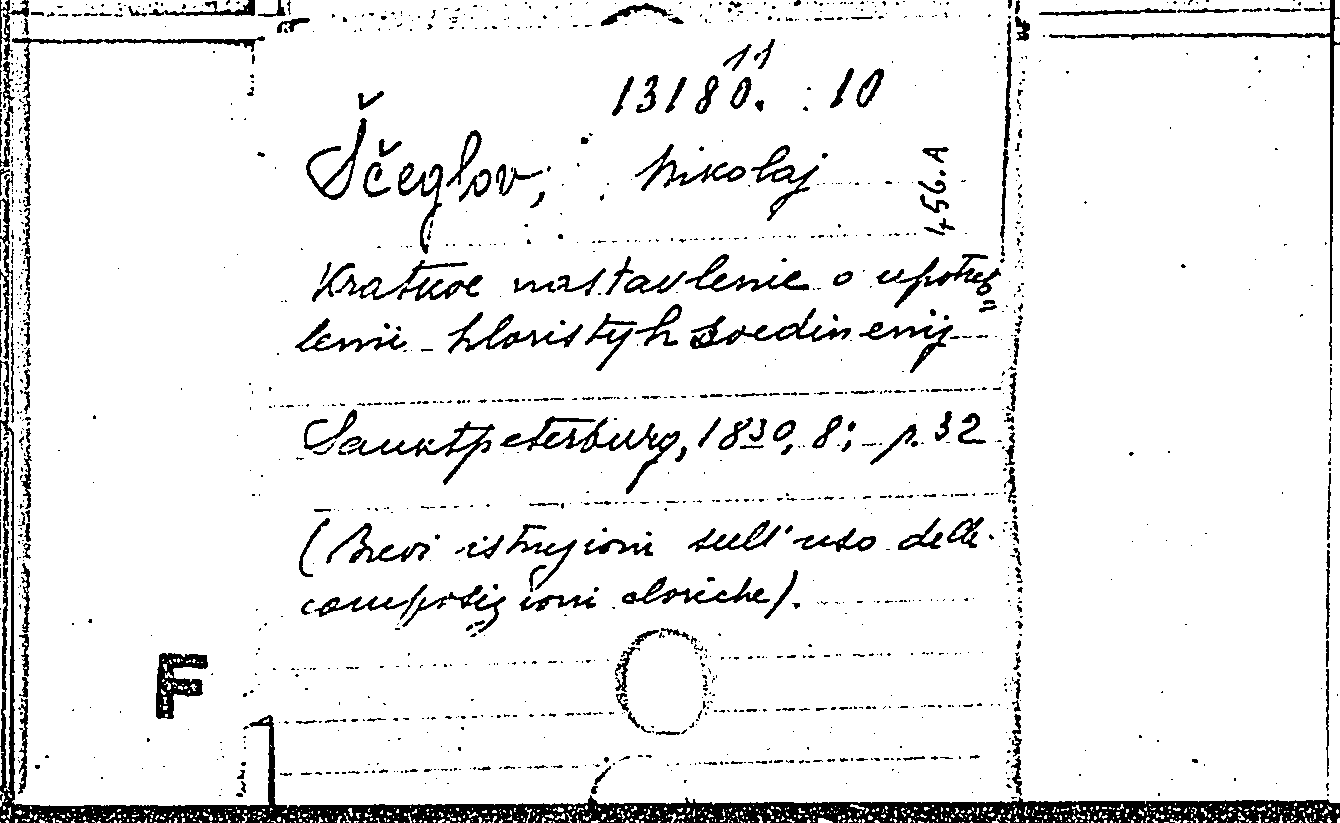 11
13180. : 10
Ščeglov, Nikolaj
456.A
Kratkoe nastavlenie o upotreb=
lenii hloristyh soedinenij
Sanktpeterburg, 1830, 8; p. 32
(Brevi istruzioni sull'uso delle
composizioni cloriche).
F